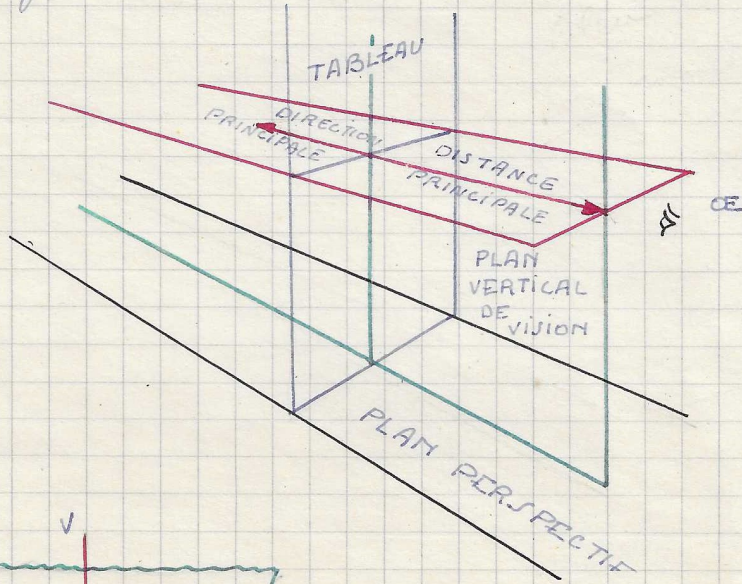 TABLEAU
DIRECTION
PRINCIPALE
DISTANCE
PRINCIPALE
OE
PLAN
VERTICAL
DE
VISION
PLAN PERSPECTIF
V